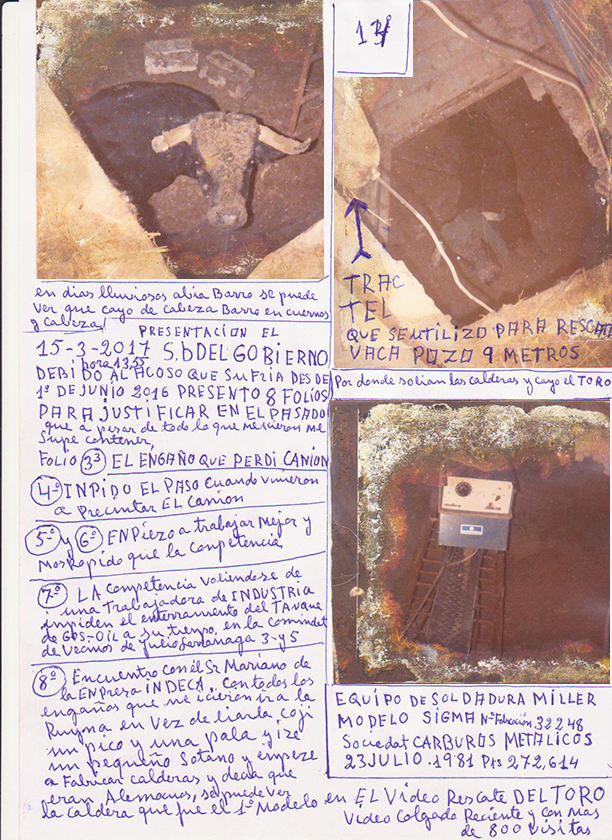 13
en dias lluviosos abia Barro se puede
ver que cayo de cabeza Barro en cuernos
y cabeza
TRAC
TEL
QUE SE UTILIZO PARA RESCATAR
VACA POZO 9 METROS
Por donde solian las calderas y cayo el TORO
PRESENTACION EL
15-3-2017 S.b DEL GOBIERNO
hora 13,55
DEBIDO AL ACOSO QUE SUFRIA DESDE
1º DE JUNIO 2016 PRESENTO 8 FOLIOS
PARA JUSTIFICAR EN EL PASADO
que a pesar de todo lo que me icieron me
Supe contener,
FOLIO 3º EL ENGAÑO QUE PERDI CANION
4º INPIDO EL PASO Cuando vinieron
a Precintar EL Camion
5º y 6º ENPiezo a trabajar Mejor y
Mas Rapido que la competencia
7º LA Competencia valiendose de
una Trabajadora de INDUSTRIA
inpiden el enterramiento del TANque
de GAS-OIL a su tienpo en la comunidat
de Vecinos de 3 y 5
8º Encuentro con él Sr Mariano de
la ENPresa INDECA. Con todos los
engaños que me icieron ira la
Ruyna en Vez de liarla, coji
un pico y una pala y ize
un pequeño Sotano y enpeze
a Fabricar calderas y decia que
eran Alemanas, se puede ver
la CALdera que fue el 1º Modelo en EL Video Rescate DEL TORO
Video Colgado Reciente y con mas
de 800 visitas
EQUIPO DE SOLDADURA MILLER
MODELO SIGMA Nº Fabricación 32248
Sociedat CARBUROS METALICOS
23 JULIO. 1981 Pts 272,614